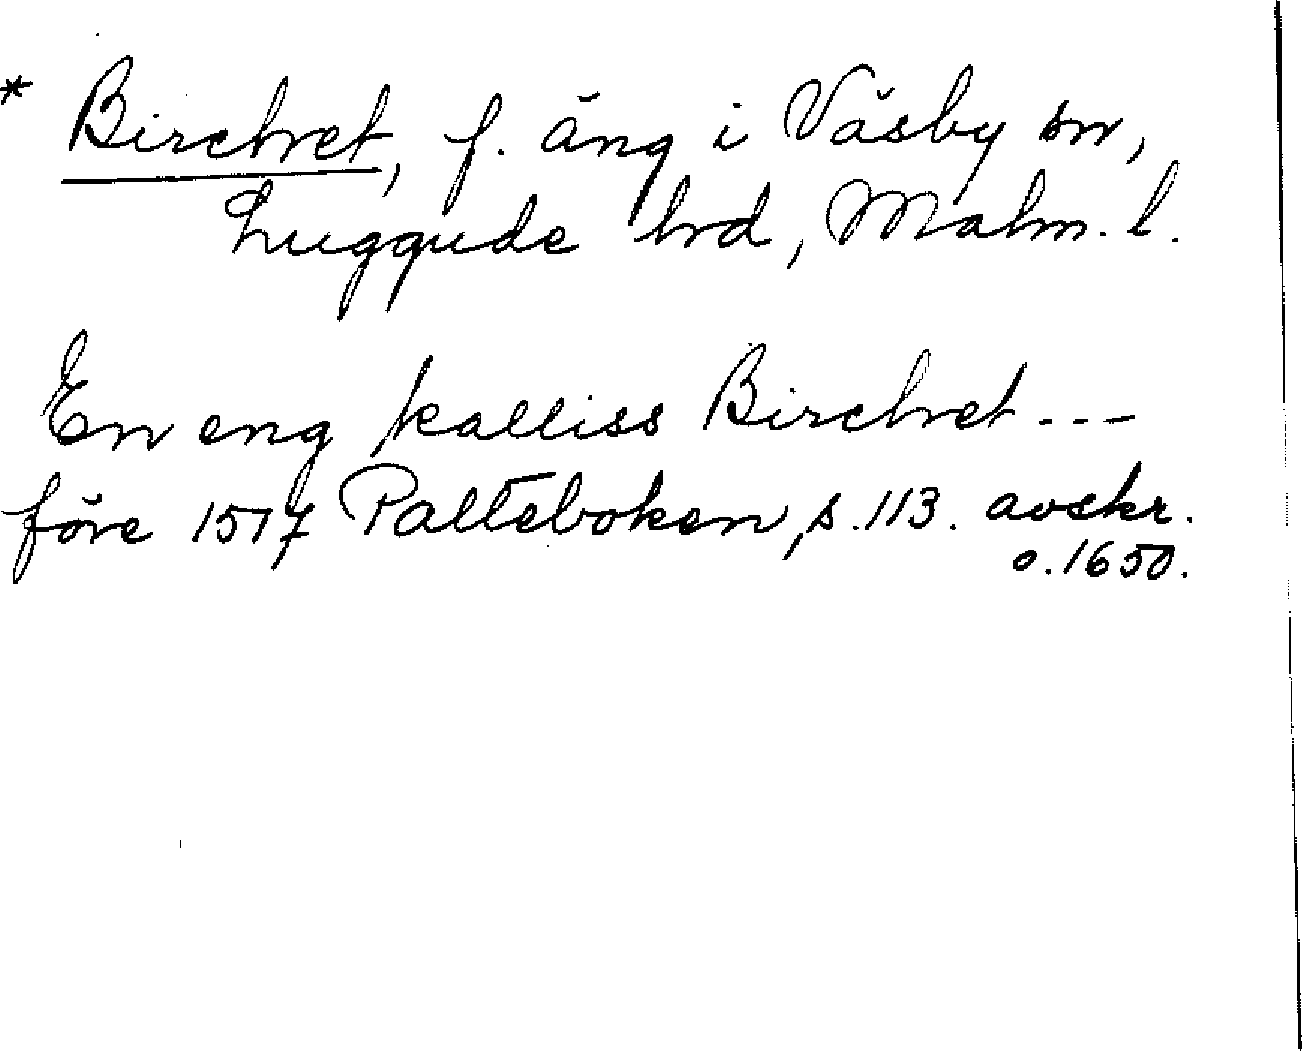 * Birchret, f. äng i Väsby sn,
Luggude hrd, Malm. l.
En eng kalliss Birchret ---
före 1517 Palteboken, s. 113. avskr.
o. 1650.